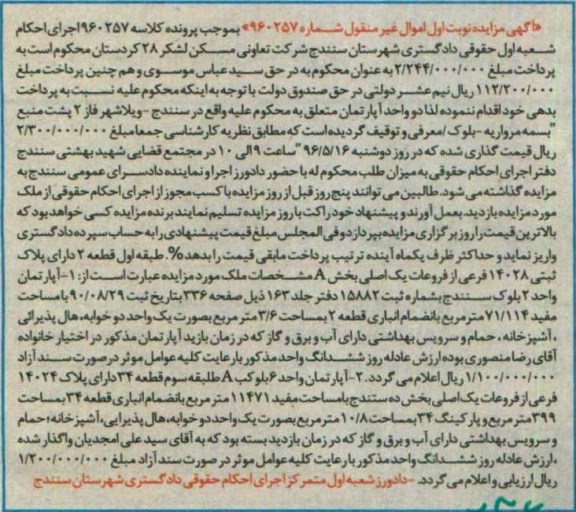 «آگهی مزایده نوبت اول اموال غیر منقول شماره ۹۶۰۲۵۷» بموجب پرونده کلاسه ۹۶۰۲۵۷ اجرای احکام
شعبه اول حقوقی دادگستری شهرستان سنندج شرکت تعاونی مسکن لشکر ۲۸ کردستان محکوم است به
پرداخت مبلغ ۲/۲۴۴/۰۰۰/۰۰۰ به عنوان محکوم به در حق سید عباس موسوی و هم چنین پرداخت مبلغ
۱۱۲/۲۰۰/۰۰۰ ریال نیم عشر دولتی در حق صندوق دولت با توجه به اینکه محکوم علیه نسبت به پرداخت
بدهی خود اقدام ننموده لذا دو واحد آپارتمان متعلق به محکوم علیه واقع در سنندج -ویلاشهر فاز ۲ پشت منبع
"بسمه مرواریه -بلوک /معرفی و توقیف گردیده است که مطابق نظریه کارشناسی جمعا مبلغ ۲/۳۰۰/۰۰۰/۰۰۰
ریال قیمت گذاری شده که در روز دوشنبه ۹۶/۵/۱۶ "ساعت ۹ الی ۱۰ در مجتمع قضایی شهید بهشتی سنندج
دفتر اجرای احکام حقوقی به میزان طلب محکوم له با حضور دادورز اجرا و نماینده دادسرای عمومی سنندج به
مزایده گذاشته می شود. طالبین می توانند پنج روز قبل از روز مزایده با کسب مجوز از اجرای احکام حقوقی از ملک
مورد مزایده بازدید. بعمل آورند و پیشنهاد خود را کت با روز مزایده تسلیم نمایند برنده مزایده کسی خواهد بود که
بالاترین قیمت را روز برگزاری مزایده بپردازد و فی المجلس مبلغ قیمت پیشنهادی را به حساب سپرده دادگستری
واریز نماید و حداکثر ظرف یکماه آینده ترتیب پرداخت مابقی قیمت را بدهد%. طبقه اول قطعه ۲ دارای پلاک
ثبتی ۱۴۰۲۸ فرعی از فروعات یک اصلی بخش A مشخصات ملک مورد مزایده عبارت است از: ۱-آپارتمان
واحد ۲ بلوک سنندج بشماره ثبت ۱۵۸۸۲ دفتر جلد ۱۶۳ ذیل صفحه ۳۳۶ بتاریخ ثبت ۹۰/۰۸/۲۹ با مساحت
مفید ۷۱/۱۱۴ متر مربع بانضمام انباری قطعه ۲ بمساحت ۳/۶ متر مربع بصورت یک واحد دو خوابه، هال پذیرائی
، آشپزخانه ، حمام و سرویس بهداشتی دارای آب و برق و گاز که در زمان بازدید آپارتمان مذکور در اختیار خانواده
آقای رضا منصوری بوده ارزش عادله روز ششدانگ واحد مذکور با رعایت کلیه عوامل موثر در صورت سند آزاد
۱/۱۰۰/۰۰۰/۰۰۰ ریال اعلام می گردد. ۲-آپارتمان واحد ۶ بلوکب A طلبقه سوم قطعه ۳۴ دارای پلاک ۱۴۰۲۴
فرعی از فروعات یک اصلی بخش ده سنندج با مساحت مفید ۱۱۴۷۱ متر مربع بانضمام انباری قطعه ۳۴ بمساحت
۳۹۹ متر مربع و پارکینگ ۳۴ بمساحت ۱۰/۸ متر مربع بصورت یک واحد دو خوابه، هال پذیرایی، آشپزخانه؛ حمام
و سرویس بهداشتی دارای آب و برق و گاز که در زمان بازدید بسته بود که به آقای سید علی امجدیان واگذار شده
،ارزش عادله روز ششدانگ واحد مذکور با رعایت کلیه عوامل موثر در صورت سند آزاد مبلغ ۱/۲۰۰/۰۰۰/۰۰۰
ریال ارزیابی و اعلام می گردد. -دادورز شعبه اول متمرکز اجرای احکام حقوقی دادگستری شهرستان سنندج